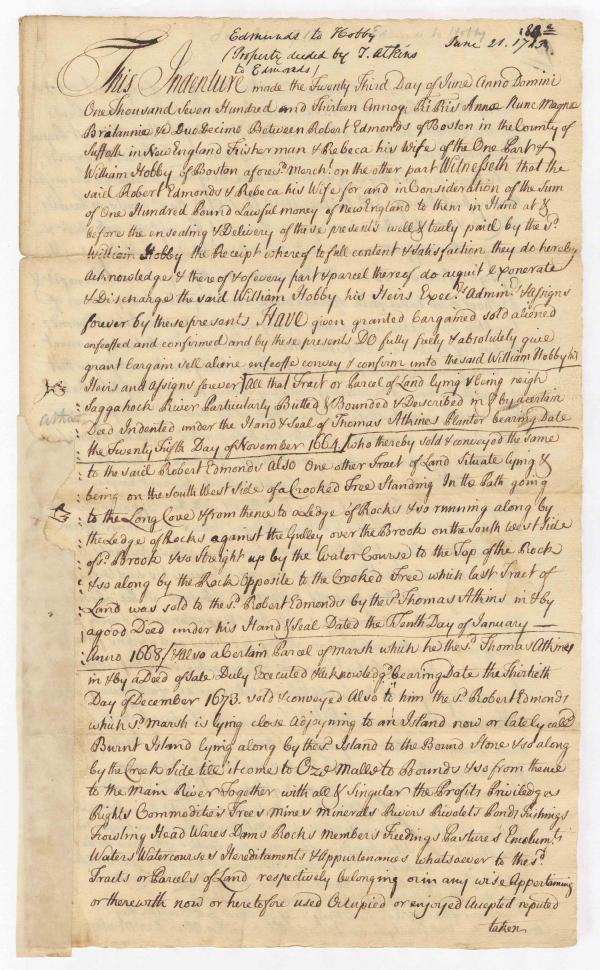 Edmunds to Hobby
June 21. 1713.
(Property deeded by T. Atkins
to Edmonds)
This Indenture made the Twenty Third Day of June Anno Domini
One Thousand Seven Hundred and Thirteen Annoq Ri Ris Annæ Nunc Magne
Britannie &c Duo Decimo Between Robert Edmonds of Boston in the County of
Suffolk in New England Fisherman & Rebeca his Wife of the One Part &
William Hobby of Boston afores.d Merch.t on the other part Witnesseth that the
said Robert Edmonds & Rebeca his Wife for and in Consideration of the Sum
of One Hundred Pound Lawful money of New England to them in Hand at &
before the ensealing & Delivery of these presents well & truly paid by the s.d
William Hobby the Receipt whereof to full content & satisfaction they do hereby
Acknowledge & thereof & of every part & parcel thereof do acquit exonerate
& Discharge the said William Hobby his Heirs Exec.rs Admin.rs & Assigns
forever by these presents Have given granted bargained sold aliened
enfeoffed and confirmed and by these presents DO fully freely & absolutely give
grant bargain sell aliene enfeoffe convey & confirm unto the said William Hobby his
Heirs and Assigns forever All that Tract or Parcel of Land lying & being neigh
Saggahock River Particularly Butted & Bounded & Described in & by a certain
Deed Indented under the Hand & Seal of Thomas Atkins Planter bearing Date
the Twenty Fifth Day of November 1664 / who thereby sold & conveyed the same
to the said Robert Edmonds Also One other Tract of Land situate lying &
being on the South West Side of a Crooked Tree Standing In the Path going
to the Long Cove & from thence to a Ledge of Rocks & so running along by
the Ledge of Rocks against the Gulley over the Brook on the South West Side
of s.d Brook & so Streight up by the Water Course to the Top of the Rock
& so along by the Rock Opposite to the Crooked Tree which last Tract of
Land was sold to the s.d Robert Edmonds by the s.d Thomas Atkins in & by
a good Deed under his Hand & Seal Dated the Tenth Day of January
Anno 1668 / Also a Certain Parcel of marsh which he the s.d Thomas Atkins
in & by a Deed of Sale Duly Executed & Acknowledg.d bearing Date the Thirtieth
Day of December 1673. sold & conveyed Also to him the s.d Robert Edmonds
which s.d marsh is lying close Adjoyning to an Island now or lately call.d
Burnt Island lying along by the s.d Island to the Bound Stone & so along
by the Creek Side till it come to Ozd Malletto Bounds & so from thence
to the Main River Together with all & Singular the Profits Priviledges
Rights Commodities Trees Mines Minerals Rivers Rivolets Ponds Fishings
Fowling Head Wares Dams Rocks Members Feedings Pastures Emolum.ts
Waters Watercourses Hereditaments & Appurtenances whatsoever to the s.d
Tracts or Parcels of Land respectively belonging or in any wise Appertaining
or therewith now or heretofore used Occupied or enjoyed Accepted reputed
taken